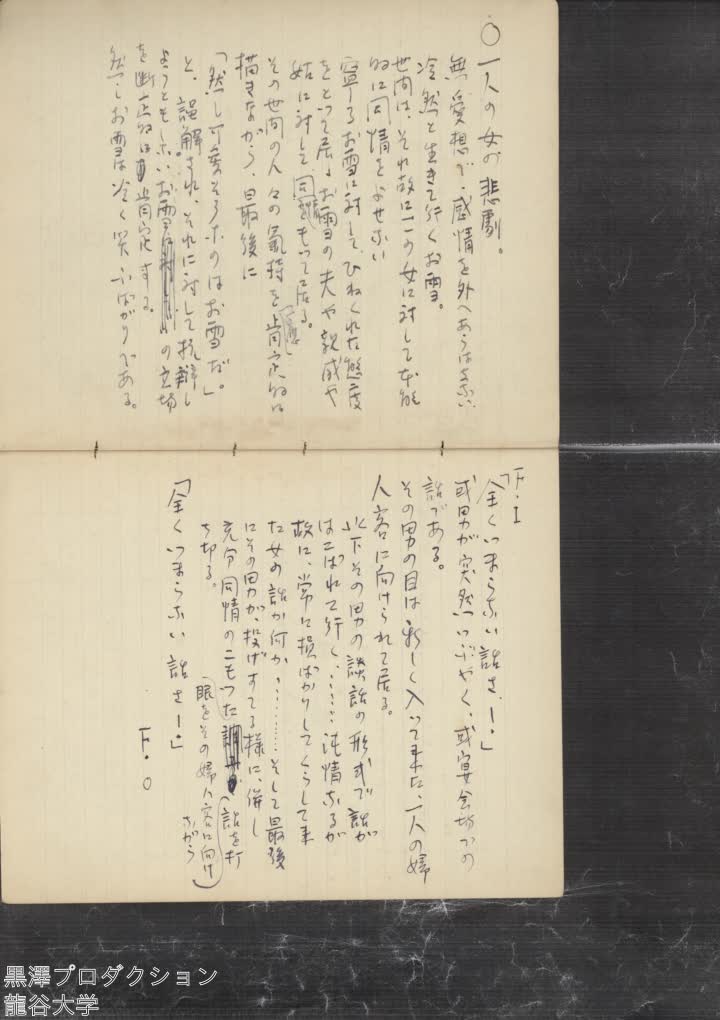 〇一人の女の悲劇。
無愛想で、感情を外へあらはさない、
冷然と生きて行くお雪。
世間は、それ故に一の女に対して本能
的に同情をよせない
寧ろお雪に対して、ひねくれた態度
をとって居、お雪の夫や親戚や
姑に対して同情をもって居る。
その世間の人々の氣持を(一應)肯定的に
描きながら、最後に
「然し可哀そうなのはお雪だ」。
と、誤解され、それに対して抗辯し
ようともしないお雪の立場
を断定的に肯定する。
然しお雪は冷く笑ふばかりである。
F・I
「全くつまらない話さ、ー。」
或男が突然つぶやく、或宴会場かの
話である。
その男の目は新しく入って来た、一人の婦
人客に向けられて居る。
以下その男の談話の形式で話が
はこばれて行く、……純情なるが
故に、常に損ばかりしてくらして来
た女の話か何か、………そして最後
にその男が、投げすてる様に、併し
充分同情のこもった(眼をその婦人客に向けながら)話を打
ち切る。
「全くつまらない話さー。」
F・O
黒澤プロダクション
龍谷大学